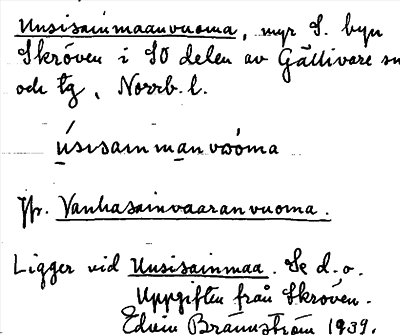 Uusisainmaanvuoma, myr S. byn
Skröven i SO delen av Gällivare sn
och tg, Norrb. l.
úsisainmanvọóma
Jfr. Vanhasainvaaranvuoma.
Ligger vid Uusisainmaa. Se d.o.
Uppgiften från Skröven.
Edvin Brännström 1939.